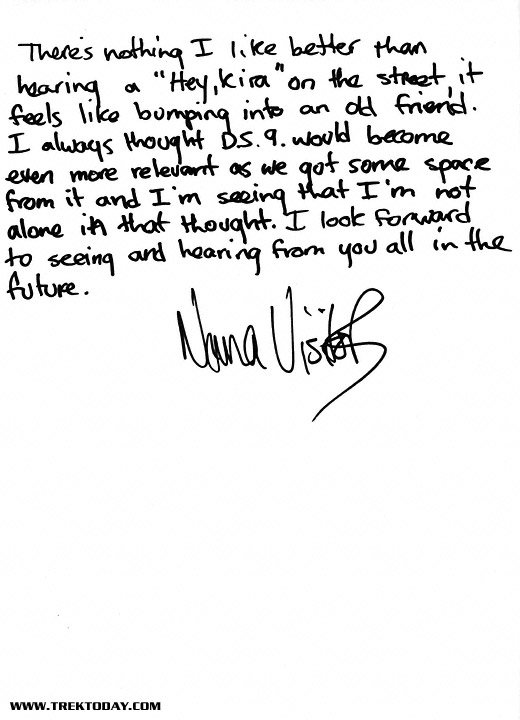 There's nothing I like better than
hearing a "Hey, Kira" on the street, it
feels like bumping into an old friend.
I always thought D.S.9. would become
even more relevant as we got some space
from it and I'm seeing that I'm not
alone in that thought. I look forward
to seeing and hearing from you all in the
future.
Nana Visitor
WWW.TREKTODAY.COM